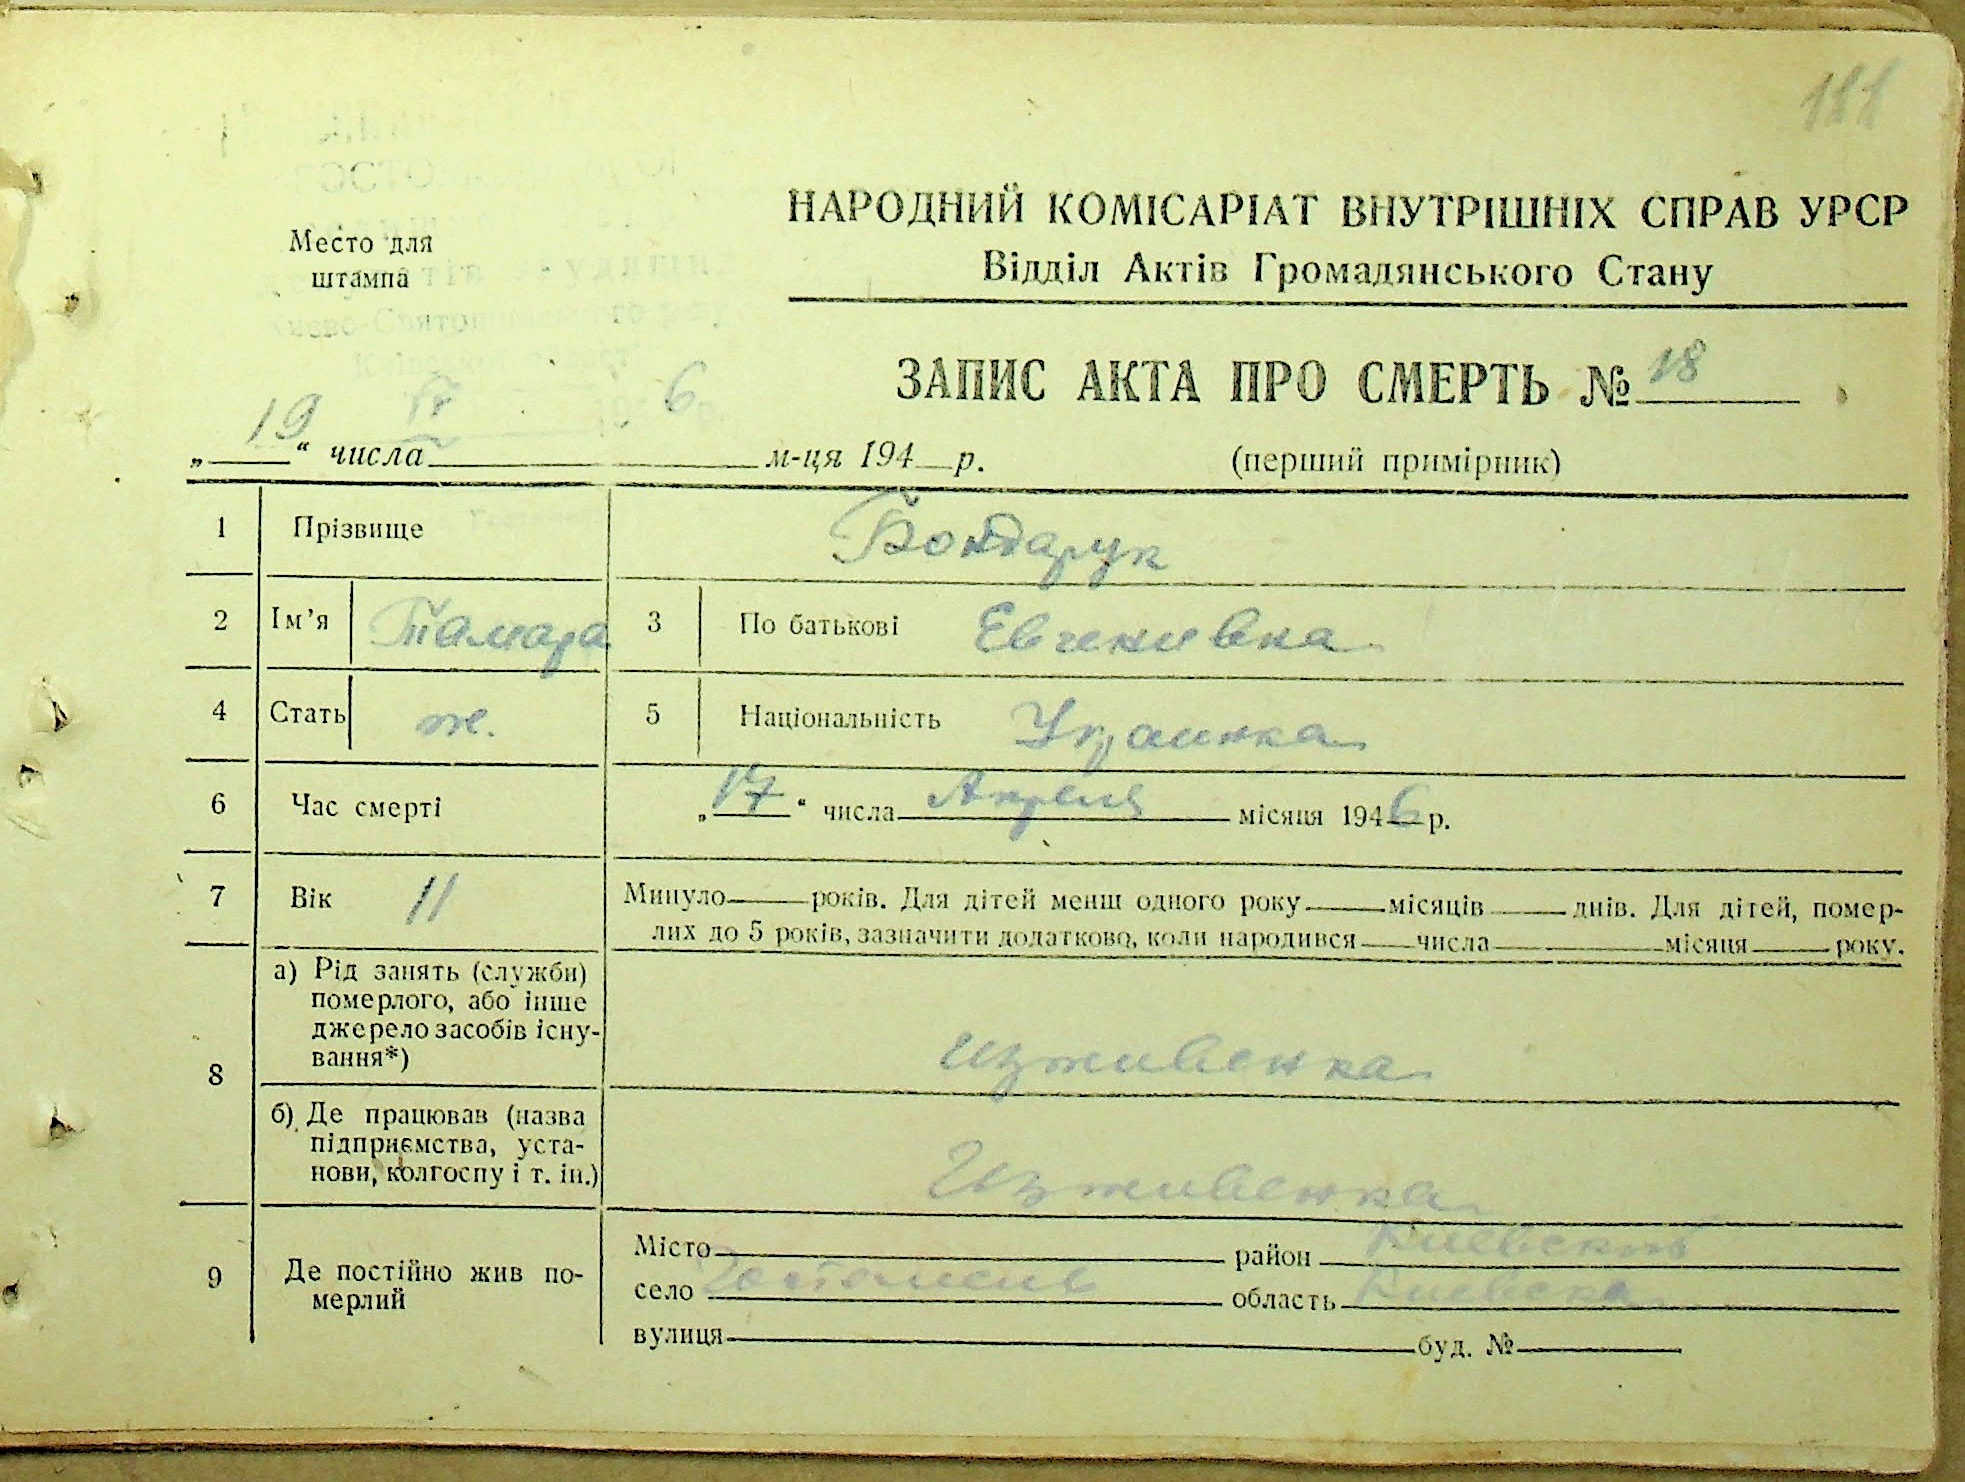 188
Место для
штампа
НАРОДНИЙ КОМІСАРІАТ ВНУТРІШНІХ СПРАВ УРСР
Відділ Актів Громадянського Стану
ЗАПИС АКТА ПРО СМЕРТЬ № 18
„19“ числа IV м-ця 1946 р.
(перший примірник)
1 Прізвище Бондарук
2 Ім’я Тамара 3 По батькові Евгенивна
4 Стать ж. 5 Національність Украинка
6 Час смерті „17“ числа Апреля місяця 1946 р.
7 Вік 11 Минуло років. Для дітей менш одного року місяців днів. Для дітей, помер-
лих до 5 років, зазначити додатково, коли народився числа місяця року.
8 а) Рід занять (служби)
померлого, або інше
джерело засобів існу-
вання*)
изживенка
б) Де працював (назва
підприємства, уста-
нови, колгоспу і т. ін.)
Изживенка
9 Де постійно жив по-
мерлий
Місто район Киевский
село Гостомель область Киевска
вулиця буд. №